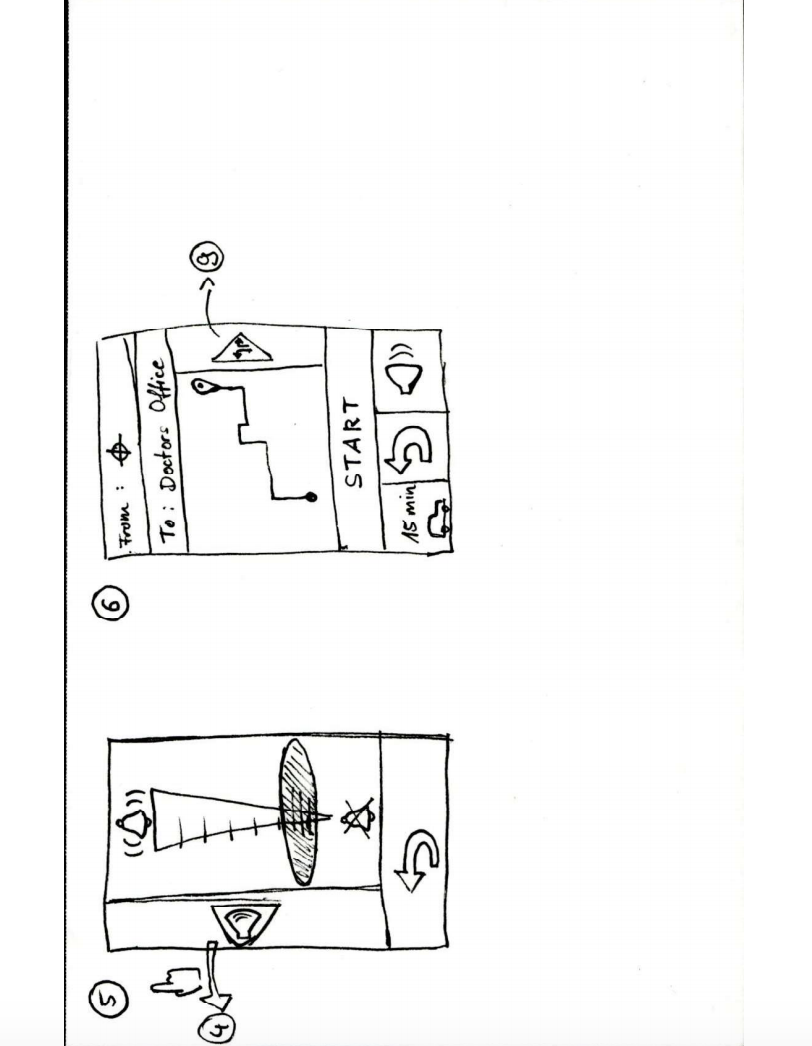 5
4
6
From :
To : Doctors Office
START
15 min
9